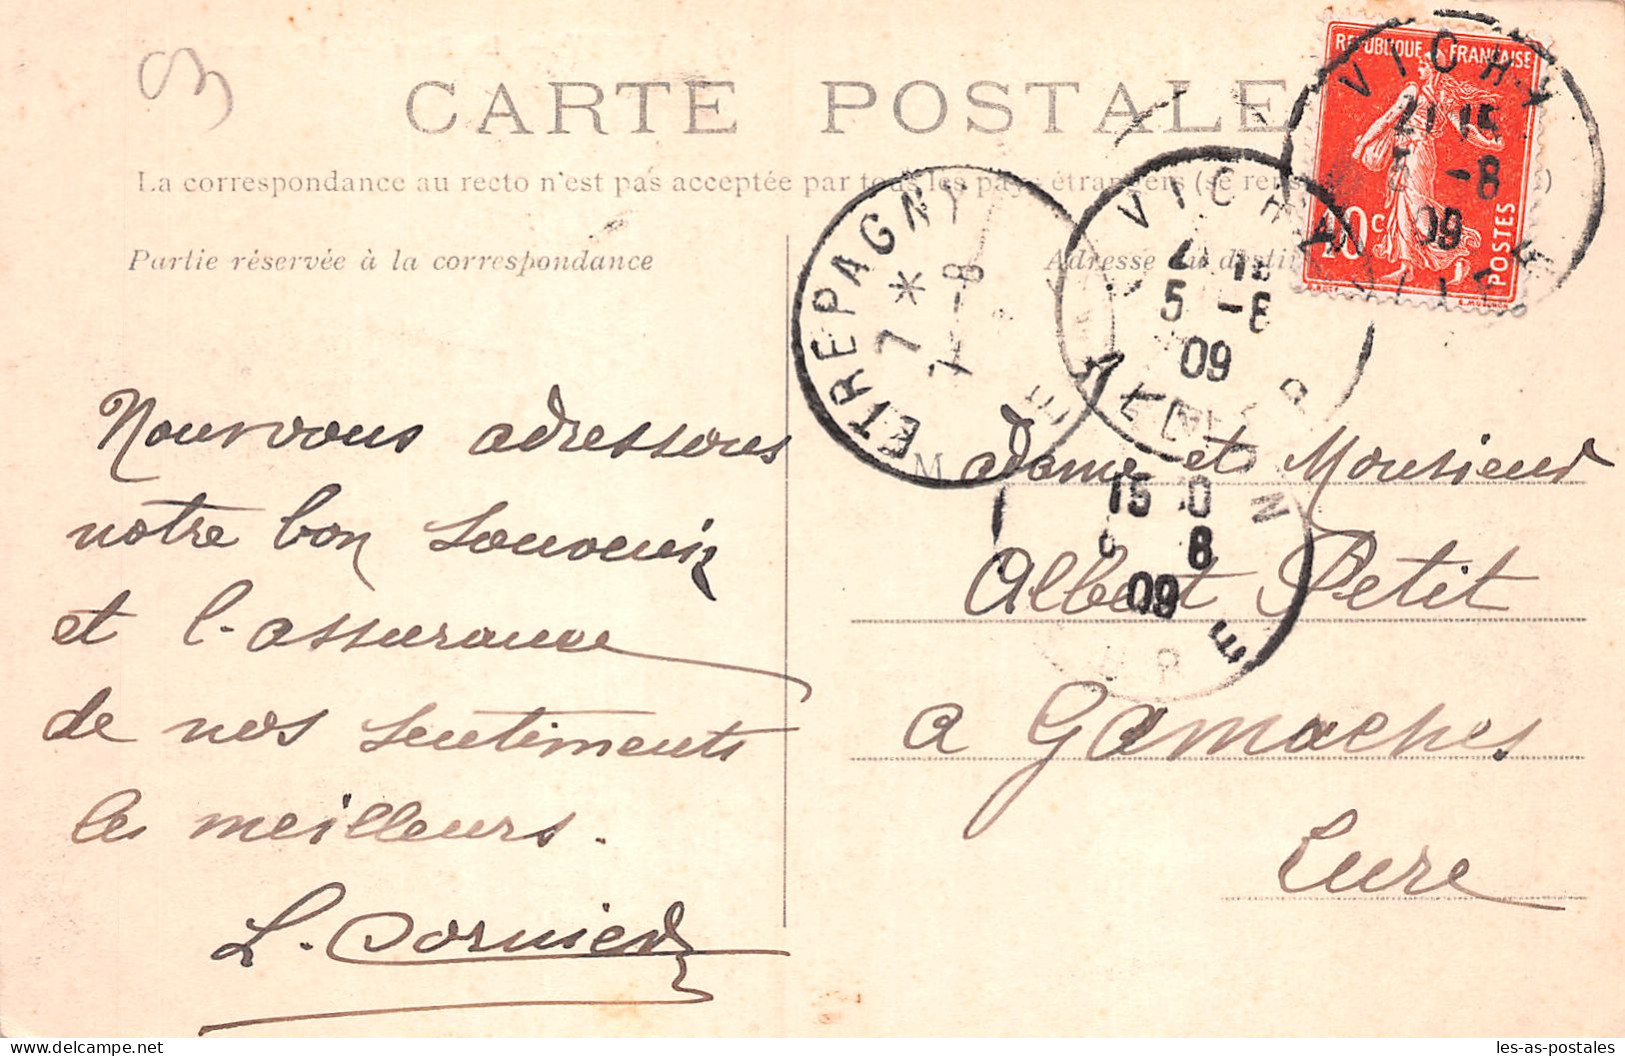 CARTE POSTALE
La correspondance au recto n'est pas acceptée par tous les pays étrangers (se rens
Partie réservée à la correspondance
Adresse du destin
REPUBLIQUE FRANÇAISE
10c
POSTES
VICHY
21 15
5 -8
09
ALLIER
VICHY
5 -8
09
ALLIER
ETREPAGNY
7 *
7 -8
15 0
8
09
Nous vous adressons
notre bon souvenir
et l'assurance
de nos sentiments
les meilleurs.
L. Cornier
Madame et Monsieur
Albert Petit
a Gamaches
Eure
les-as-postales